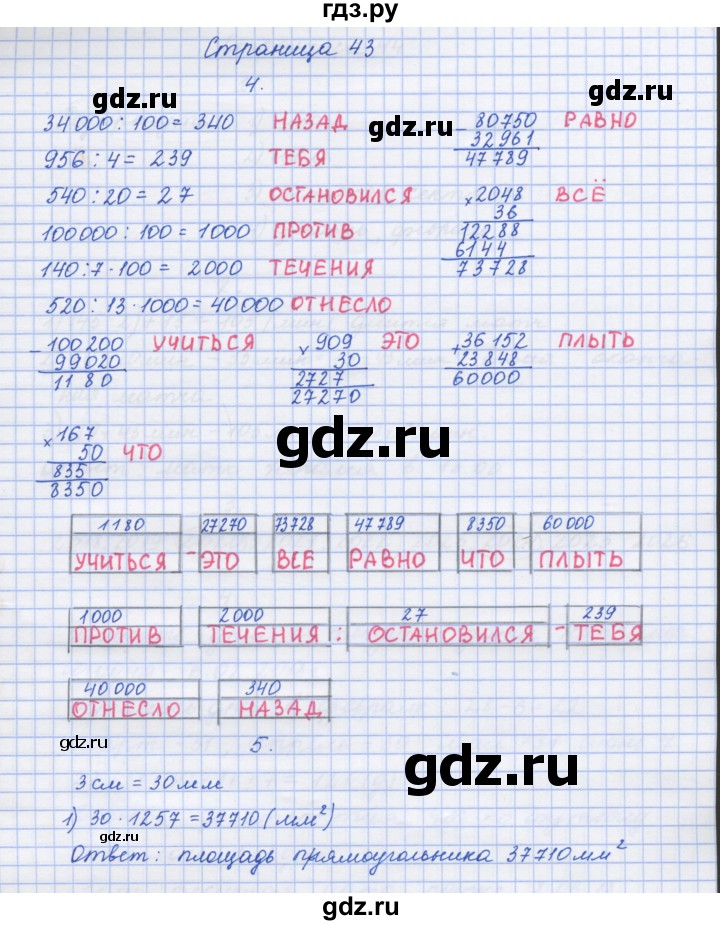 гдз.ру
Страница 43
4.
34000 : 100 = 340 НАЗАД
956 : 4 = 239 ТЕБЯ
540 : 20 = 27 ОСТАНОВИЛСЯ
100000 : 100 = 1000 ПРОТИВ
140 : 7 · 100 = 2000 ТЕЧЕНИЯ
520 : 13 · 1000 = 40000 ОТНЕСЛО
- 80750 РАВНО
32961
47789
× 2048 ВСЁ
36
12288
6144
73728
- 100200 УЧИТЬСЯ
99020
1180
× 909 ЭТО
30
2727
27270
+ 36152 ПЛЫТЬ
23848
60000
× 167
50 ЧТО
835
8350
1180 27270 73728 47789 8350 60000
УЧИТЬСЯ - ЭТО ВСЕ РАВНО ЧТО ПЛЫТЬ
1000 2000 27 239
ПРОТИВ ТЕЧЕНИЯ : ОСТАНОВИЛСЯ - ТЕБЯ
40000 340
ОТНЕСЛО НАЗАД
5.
3 см = 30 мм
1) 30 · 1257 = 37710 (мм²)
Ответ: площадь прямоугольника 37710 мм²
gdz.ru
gdz.ru
gdz.ru
gdz.ru
gdz.ru
gdz.ru
gdz.ru
gdz.ru
gdz.ru
gdz.ru